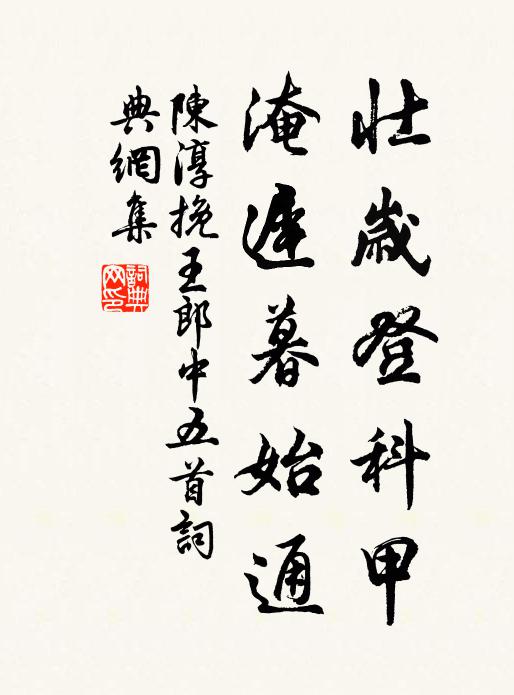 壮歲登科甲
淹遲暮始通
陳淳挽王郎中五首詞
典網集
詞典網印